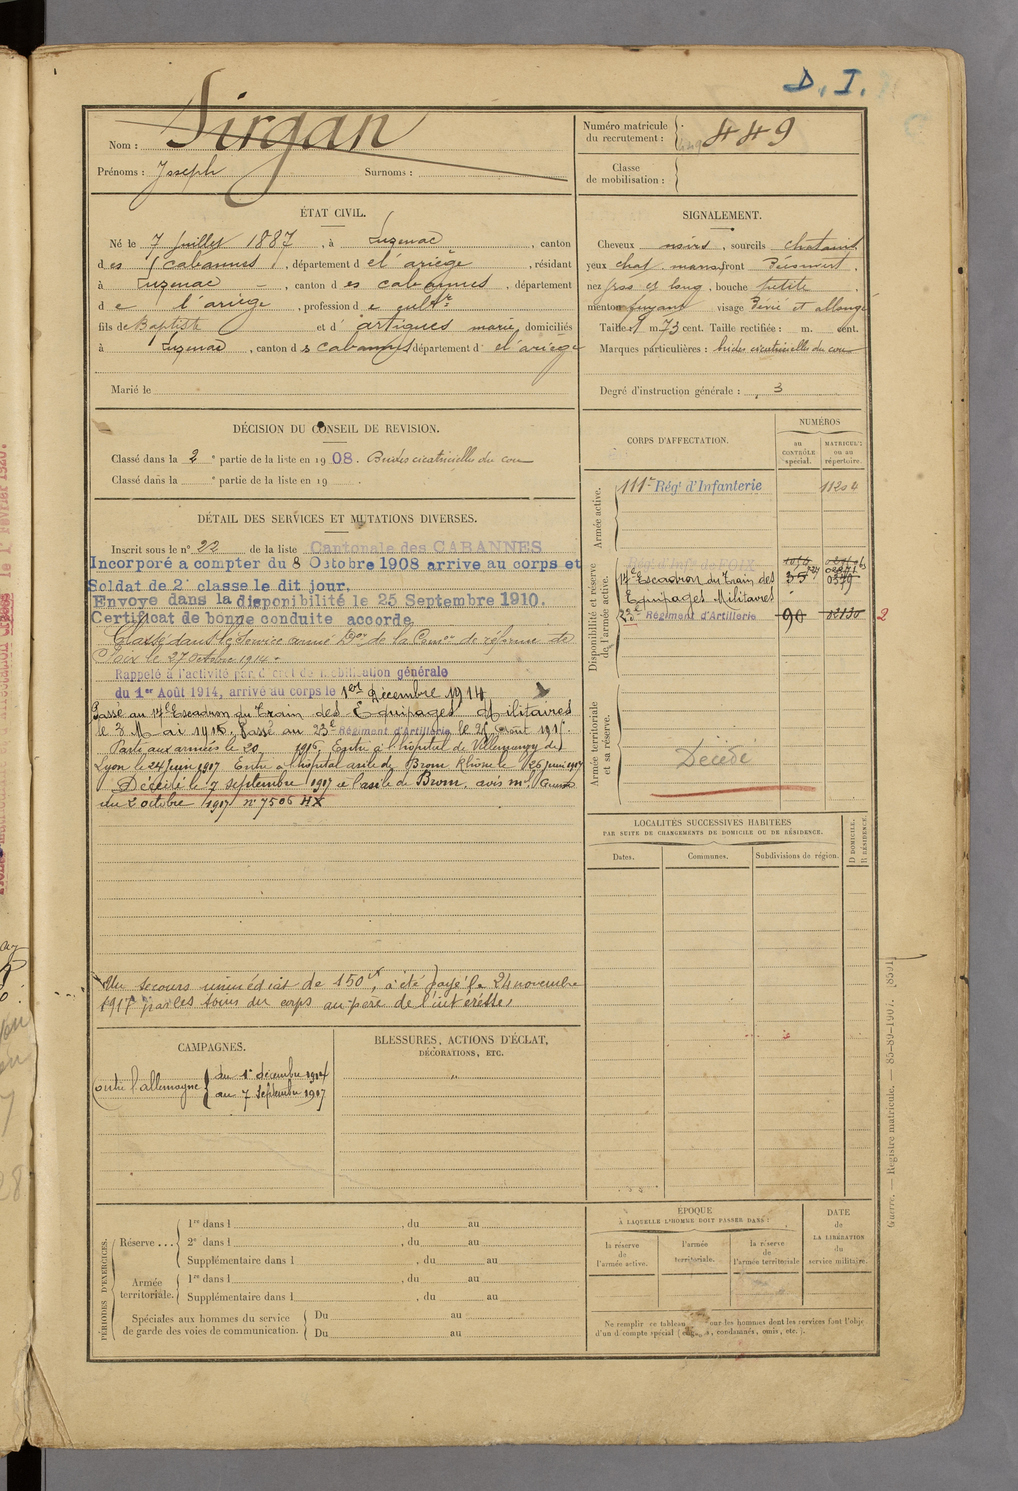 D. I.
Nom : Sirgan
Prénoms : Joseph Surnoms :
Numéro matricule du recrutement : 449
Classe de mobilisation :
ÉTAT CIVIL.
Né le 7 Juillet 1887, à Luzenac, canton
des Cabannes, département de l'ariège, résidant
à Luzenac, canton des cabannes, département
de l'ariège, profession de cultr
fils de Baptiste et d'artigues marie, domiciliés
à Luzenac, canton ds cabannes département de l'ariège
Marié le
SIGNALEMENT.
Cheveux noirs, sourcils chatains
yeux chat. front Découvert,
nez gros et long, bouche petite
menton fuyant visage allongé
Taille 1 m 73 cent. Taille rectifiée : m. cent.
Marques particulières : brides cicatricielles du cou
Degré d'instruction générale : 3
DÉCISION DU CONSEIL DE REVISION.
Classé dans la 2e partie de la liste en 1908. Brides cicatricielles du cou
Classé dans la e partie de la liste en 19 .
DÉTAIL DES SERVICES ET MUTATIONS DIVERSES.
Inscrit sous le n° 22 de la liste Cantonale des CABANNES
Incorporé a compter du 8 Octobre 1908 arrive au corps et
Soldat de 2e classe le dit jour.
Envoye dans la disponibilité le 25 Septembre 1910.
Certificat de bonne conduite accorde
Classé dans le Service armé Don de la Comon de réforme de
Foix le 27 Octobre 1914.
Rappelé à l'activité par décret de mobilisation générale
du 1er Août 1914, arrivé au corps le 1er Décembre 1914
Passé au Escadron du Train des Equipages Militaires
le 3 Mai 1915. Passé au 23e Régiment d'Artillerie le Août 1915.
Parti aux armées le 20 1916, Entré à l'hôpital de Villemanzy de
Lyon le 24 juin 1917 Entré à l'hôpital asile de Brom Rhône le 26 juin 1917
Décédé le 7 septembre 1917 à l'asile de Brom, avis
du 2 octobre 1917 n° 7506 HX
Un secours immédiat de 150 fr, a été payé le 24 novembre
1917 par les soins du corps au père de l'intéressé
CORPS D'AFFECTATION.
NUMÉROS
au CONTRÔLE spécial.
MATRICULE ou au répertoire.
Armée active.
111e Régt d'Infanterie 11204
Disponibilité et réserve de l'armée active.
Régt Infie de FOIX
Escadron du Train des
Equipages Militaires
23e Régiment d'Artillerie 90 2
Armée territoriale et sa réserve.
Décédé
LOCALITÉS SUCCESSIVES HABITÉES
PAR SUITE DE CHANGEMENTS DE DOMICILE OU DE RÉSIDENCE.
Dates. Communes. Subdivisions de région. D DOMICILE. R RÉSIDENCE.
CAMPAGNES.
Contre l'allemagne du 1er décembre 1914
au 7 Septembre 1917
BLESSURES, ACTIONS D'ÉCLAT,
DÉCORATIONS, ETC.
PÉRIODES D'EXERCICES.
Réserve... 1re dans l , du au
2e dans l , du au
Supplémentaire dans l , du au
Armée territoriale. 1re dans l , du au
Supplémentaire dans l , du au
Spéciales aux hommes du service Du au
de garde des voies de communication. Du au
ÉPOQUE
À LAQUELLE L'HOMME DOIT PASSER DANS :
la réserve de l'armée active.
l'armée territoriale.
la réserve de l'armée territoriale
DATE de LA LIBÉRATION du service militaire.
Ne remplir ce tableau pour les hommes dont les services font l'obje
d'un d compte spécial ( , condamnés, omis, etc.).
Guerre. — Registre matricule. — 85-89-1907. [8391]